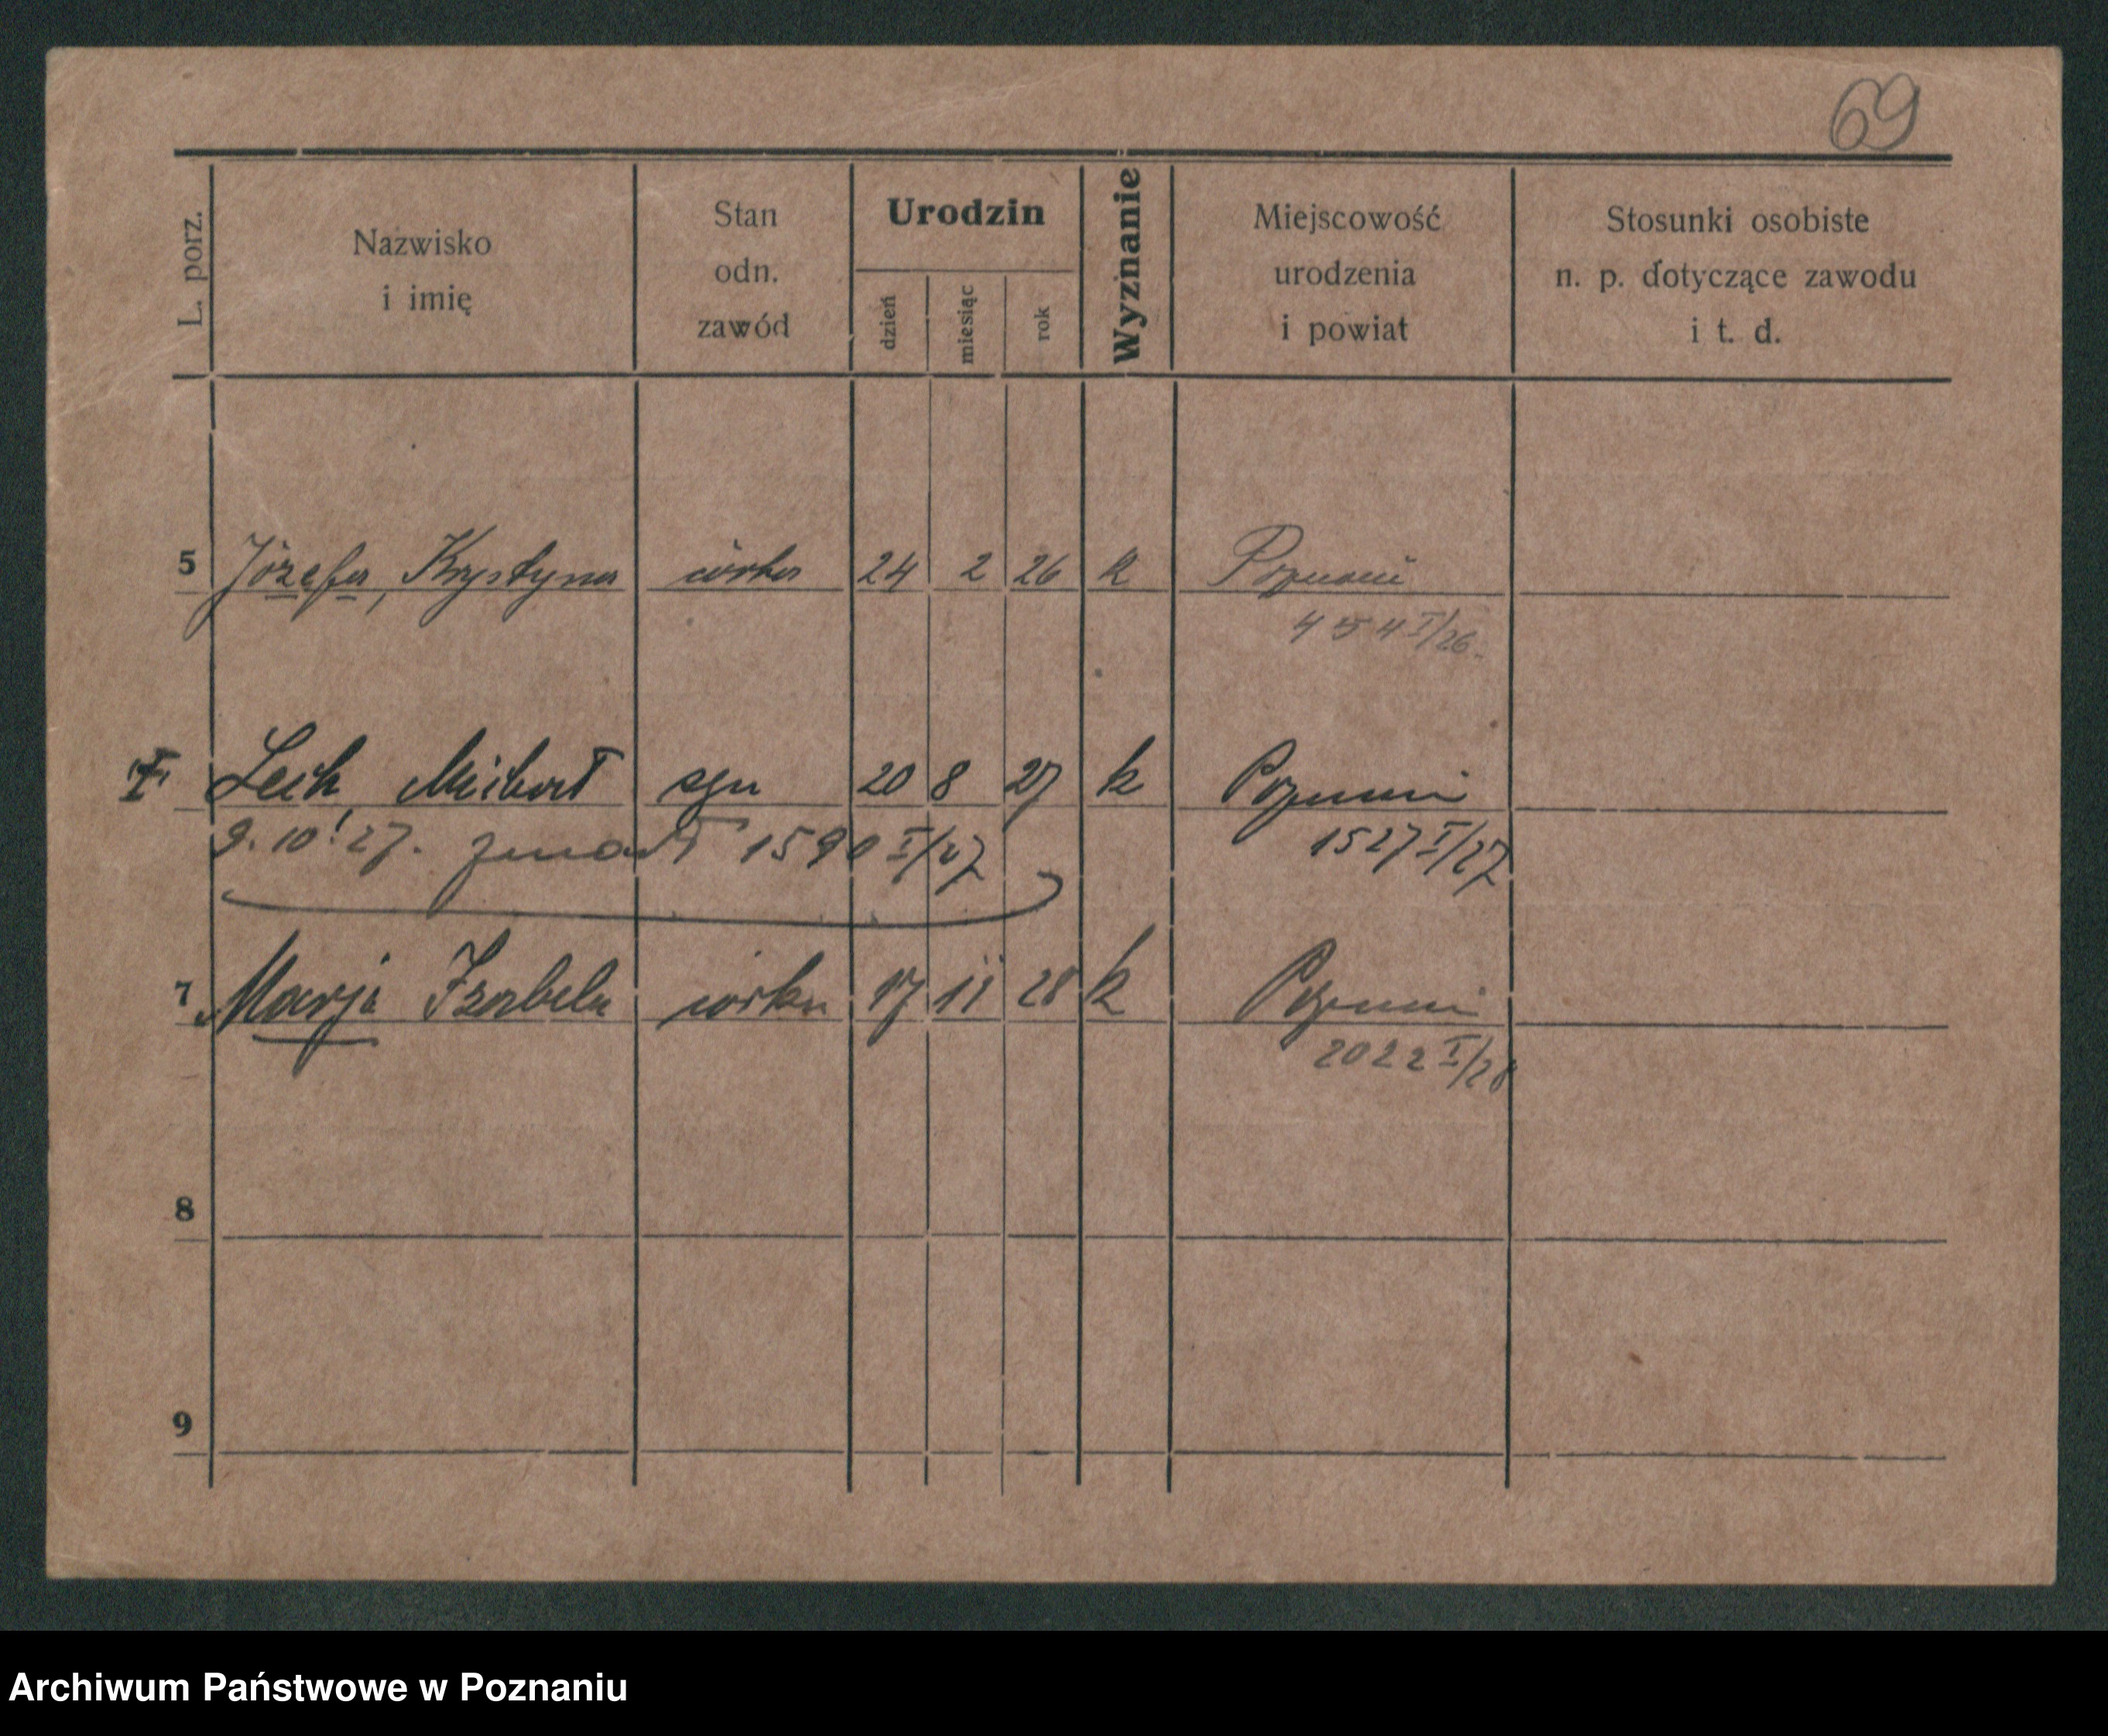 69
L. porz.
Nazwisko
i imię
Stan
odn.
zawód
Urodzin
dzień
miesiąc
rok
Wyznanie
Miejscowość
urodzenia
i powiat
Stosunki osobiste
n. p. dotyczące zawodu
i t. d.
5 Józefa, Krystyna córka 24 2 26 k Poznań
454 I/26.
Lech Michał syn 20 8 27 k Poznań
9.10.27. zmarł 1590 I/27
1527 I/27
7 Marja Izabela córka 17 11 28 k Poznań
2022 I/28
8
9
Archiwum Państwowe w Poznaniu